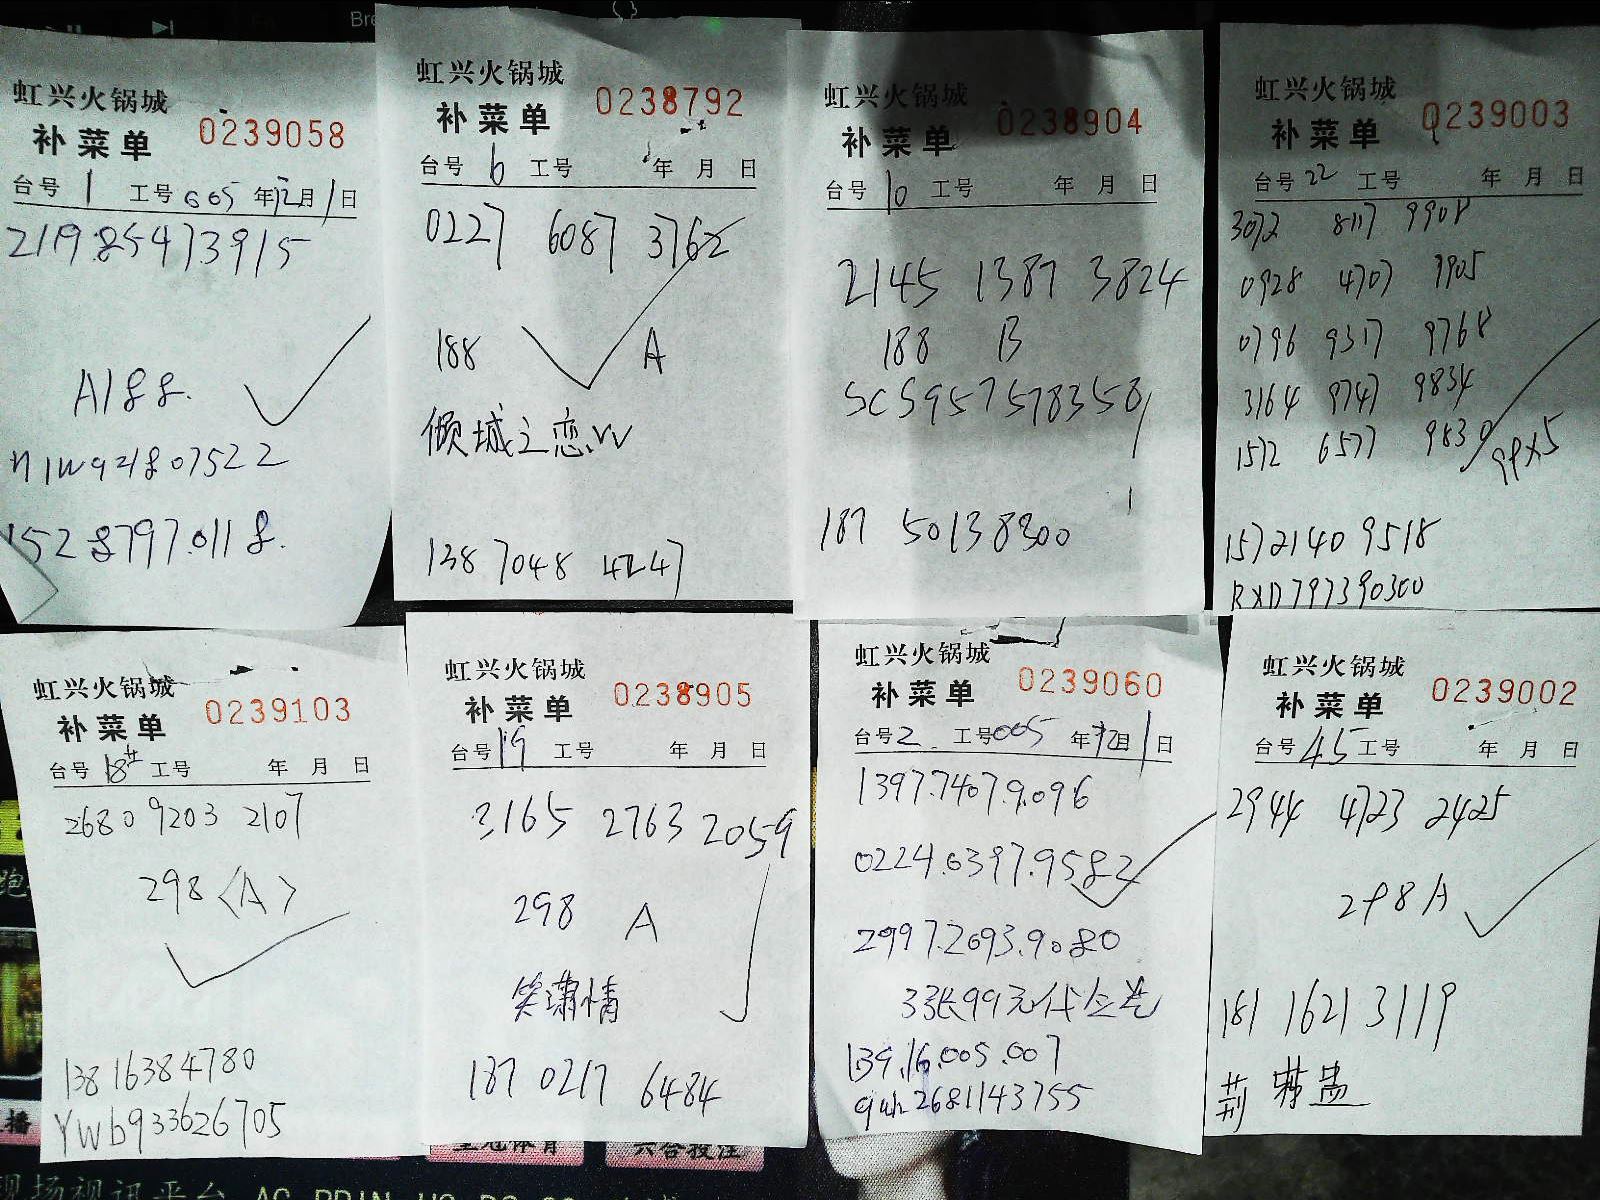 虹兴火锅城
补菜单 0239058
台号 1 工号 005 年12月1日
2119 8547 3915
A188.
15287970118.
虹兴火锅城
补菜单 0238792
台号 6 工号 年 月 日
0227 6087 3762
188 A
倾城之恋VV
138 7048 4247
虹兴火锅城
补菜单 0238904
台号 10 工号 年 月 日
2145 1387 3824
188 B
SCS957578358
187 50138300
虹兴火锅城
补菜单 0239003
台号 22 工号 年 月 日
3072 8117 9908
0928 4707 9905
0796 9317 9768
3164 9747 9834
1572 6577 9830 99x5
15721409518
RXD797390300
虹兴火锅城
补菜单 0239103
台号 18# 工号 年 月 日
2680 9203 2107
298 <A>
138 16384780
YWb933626705
虹兴火锅城
补菜单 0238905
台号 19 工号 年 月 日
3165 2763 2059
298 A
笑潇情
187 0217 6484
虹兴火锅城
补菜单 0239060
台号 2 工号 005 年12月1日
1397.7407.9096
0224.6397.9582
2997.2693.9080
3张99元代金券
139.16.005.007
quh2681143755
虹兴火锅城
补菜单 0239002
台号 45 工号 年 月 日
2944 4723 2425
298 A
181 1621 3119